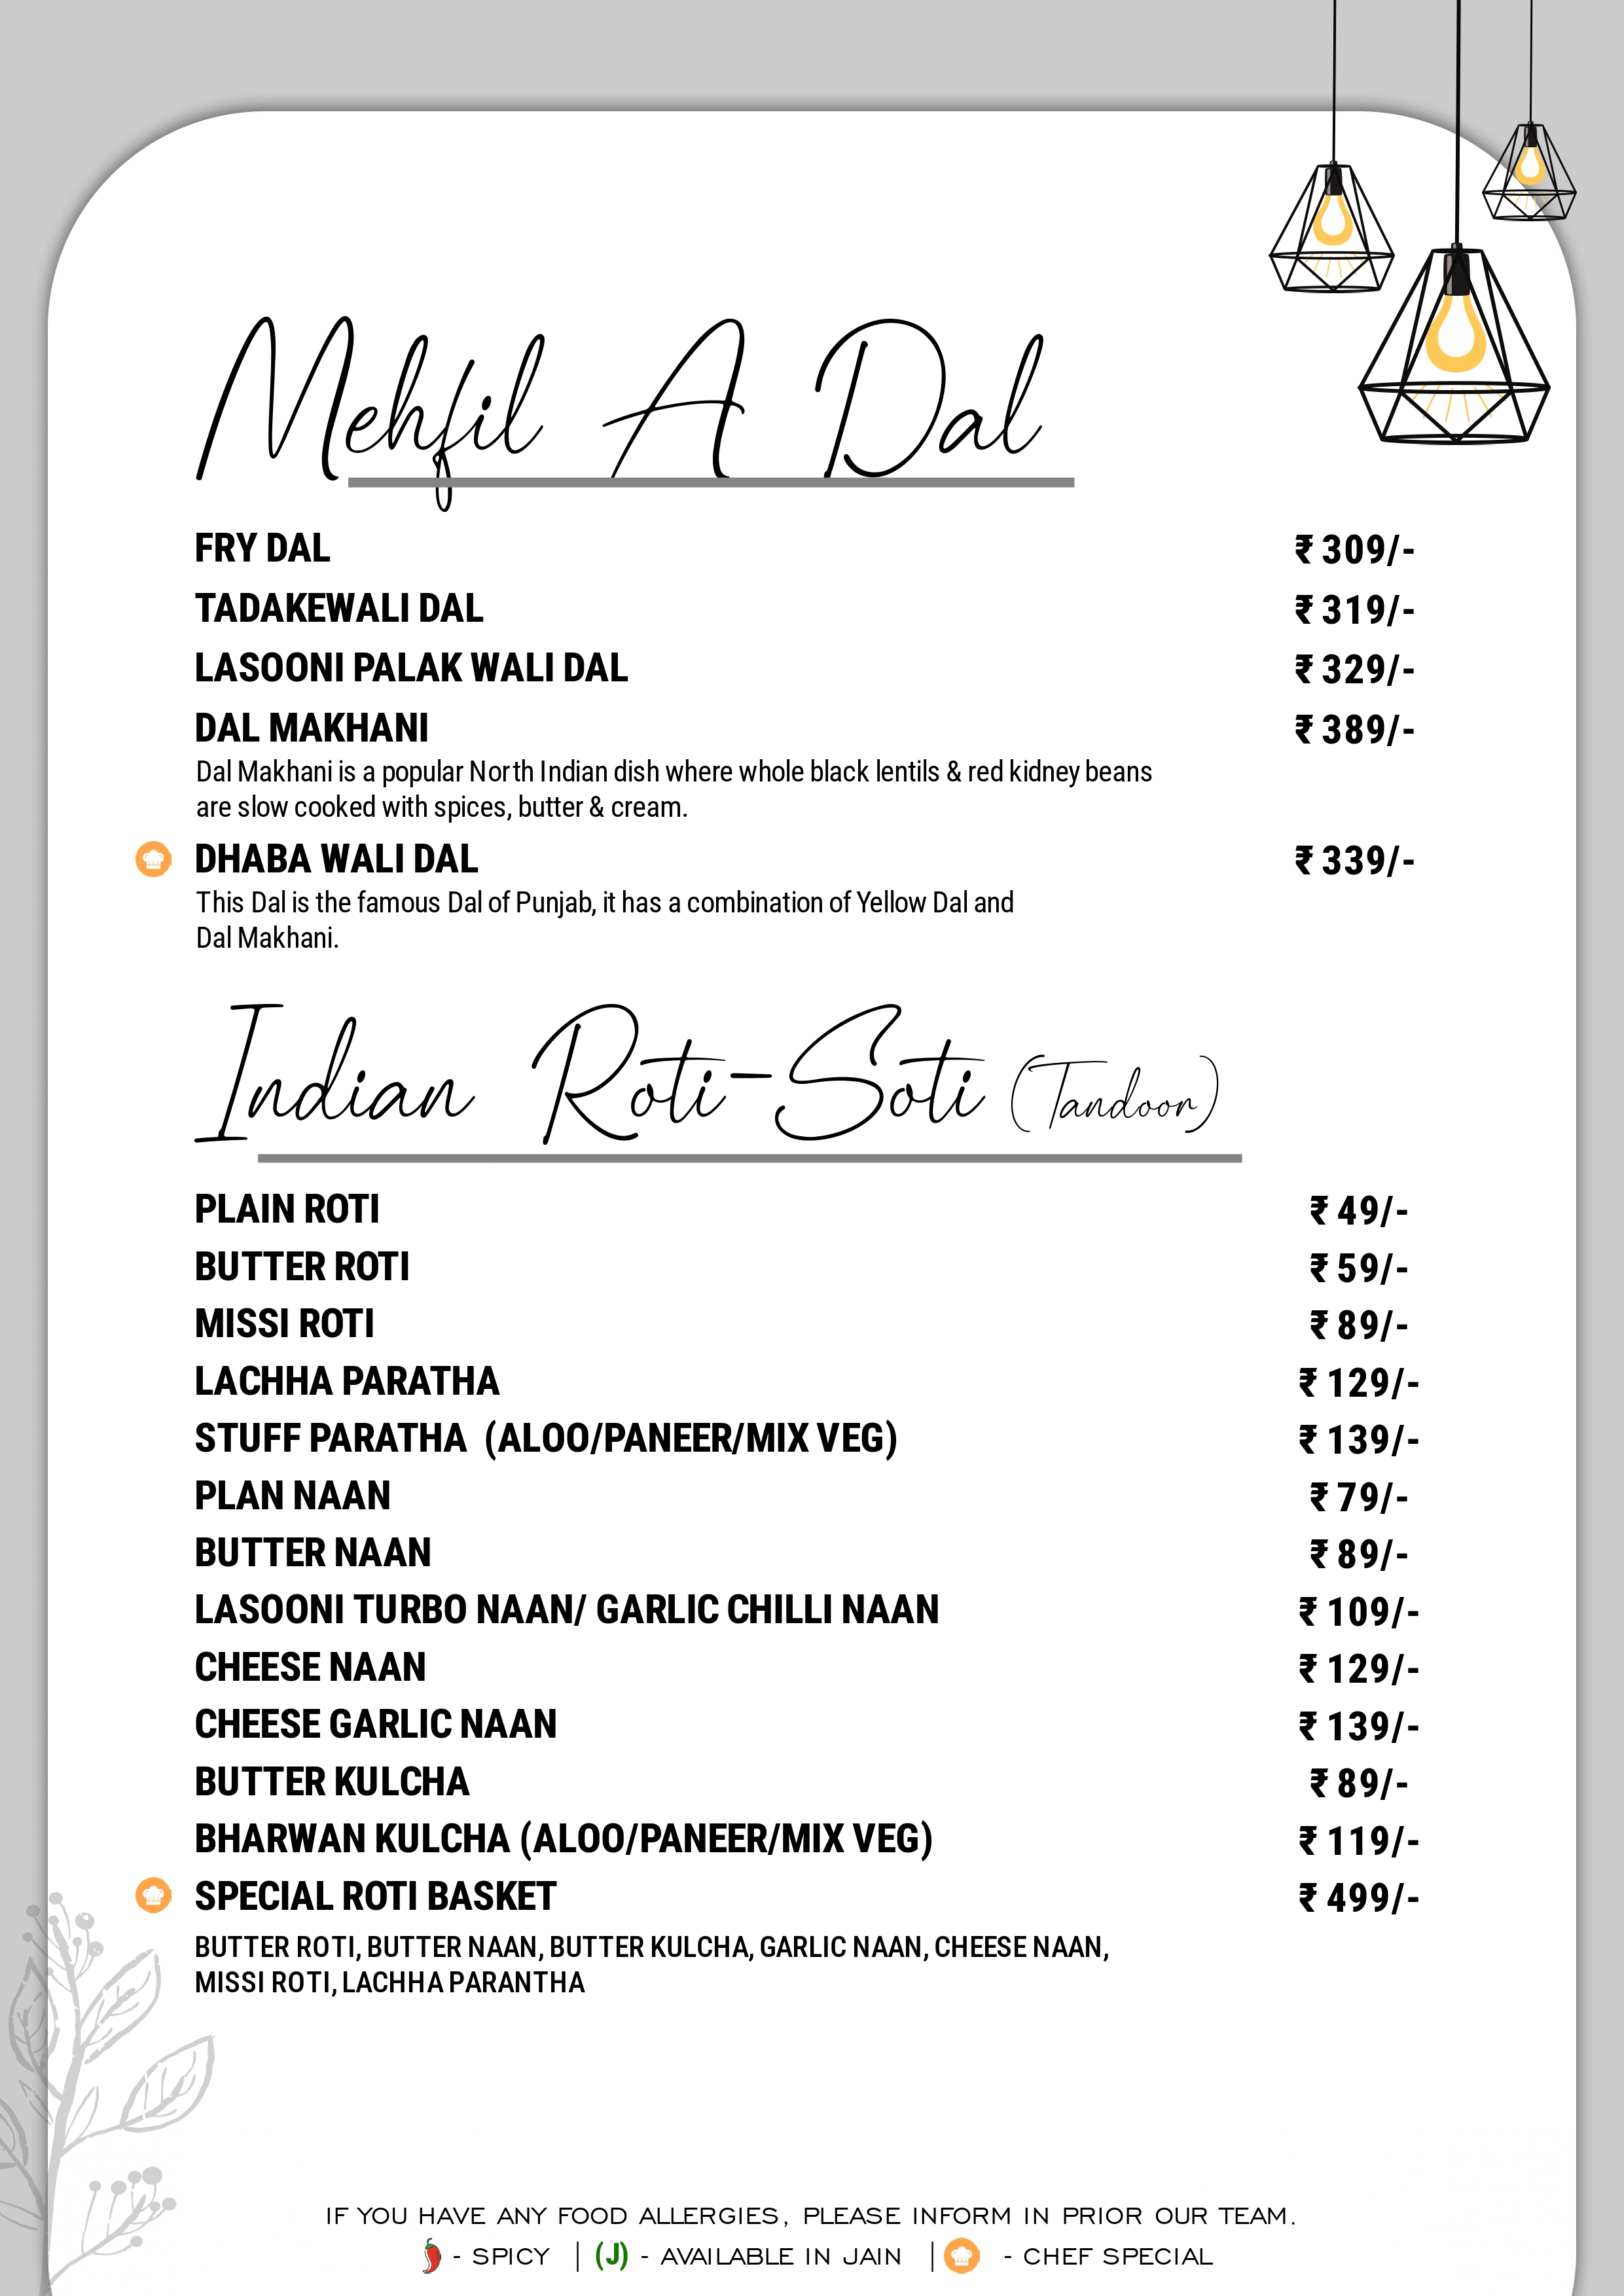 Mehfil A Dal
FRY DAL ₹ 309/-
TADAKEWALI DAL ₹ 319/-
LASOONI PALAK WALI DAL ₹ 329/-
DAL MAKHANI ₹ 389/-
Dal Makhani is a popular North Indian dish where whole black lentils & red kidney beans
are slow cooked with spices, butter & cream.
DHABA WALI DAL ₹ 339/-
This Dal is the famous Dal of Punjab, it has a combination of Yellow Dal and
Dal Makhani.
Indian Roti-Soti (Tandoor)
PLAIN ROTI ₹ 49/-
BUTTER ROTI ₹ 59/-
MISSI ROTI ₹ 89/-
LACHHA PARATHA ₹ 129/-
STUFF PARATHA (ALOO/PANEER/MIX VEG) ₹ 139/-
PLAN NAAN ₹ 79/-
BUTTER NAAN ₹ 89/-
LASOONI TURBO NAAN/ GARLIC CHILLI NAAN ₹ 109/-
CHEESE NAAN ₹ 129/-
CHEESE GARLIC NAAN ₹ 139/-
BUTTER KULCHA ₹ 89/-
BHARWAN KULCHA (ALOO/PANEER/MIX VEG) ₹ 119/-
SPECIAL ROTI BASKET ₹ 499/-
BUTTER ROTI, BUTTER NAAN, BUTTER KULCHA, GARLIC NAAN, CHEESE NAAN,
MISSI ROTI, LACHHA PARANTHA
IF YOU HAVE ANY FOOD ALLERGIES, PLEASE INFORM IN PRIOR OUR TEAM.
- SPICY | (J) - AVAILABLE IN JAIN | - CHEF SPECIAL